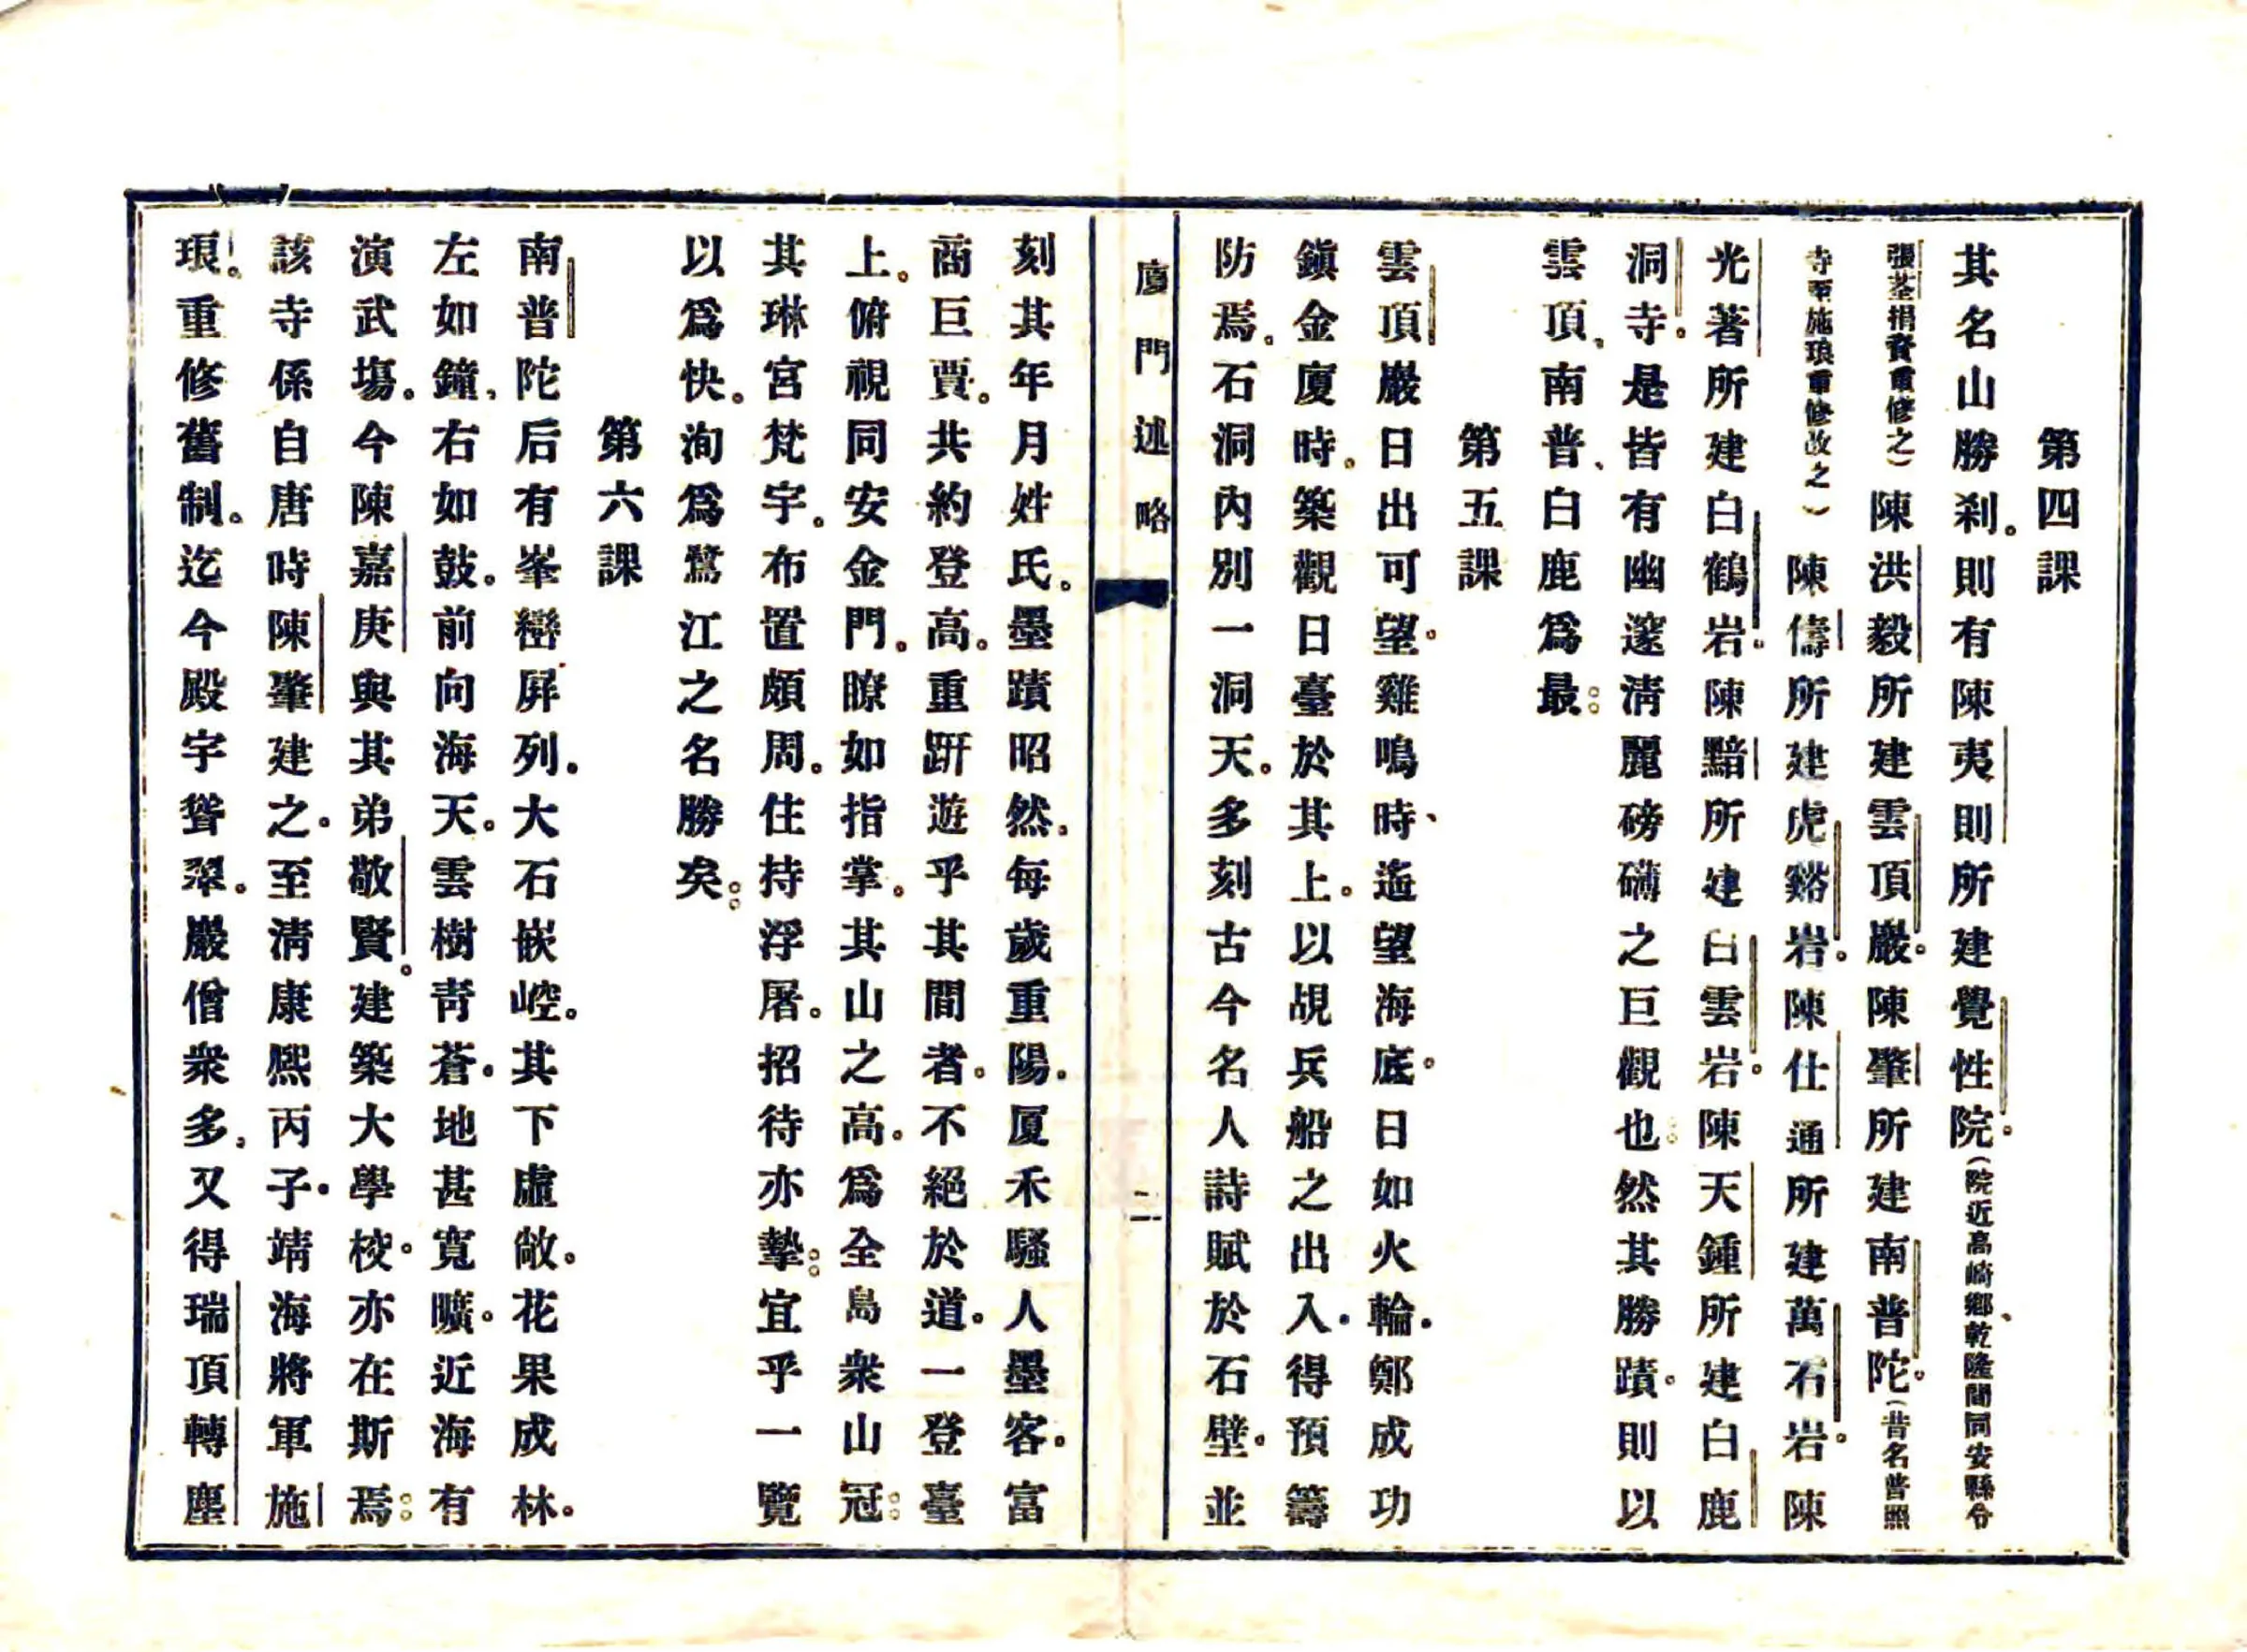 第四課
其名山勝刹。則有陳夷則所建覺性院。(院近高崎鄉、乾隆間同安縣令
張荃捐資重修之)陳洪毅所建雲頂巖。陳肇所建南普陀。(昔名普照
寺至施琅重修改之)陳儔所建虎谿岩。陳仕通所建萬石岩。陳
光著所建白鶴岩。陳黯所建白雲岩。陳天鍾所建白鹿
洞寺。是皆有幽邃清麗磅礴之巨觀也。然其勝蹟。則以
雲頂、南普、白鹿爲最。
第五課
雲頂巖日出可望。雞鳴時、遙望海底。日如火輪。鄭成功
鎮金廈時。築觀日臺於其上。以覘兵船之出入。得預籌
防焉。石洞內別一洞天。多刻古今名人詩賦於石壁。並
廈門述略
二
刻其年月姓氏。墨蹟昭然。每歲重陽。厦禾騷人墨客。富
商巨賈。共約登高。重趼遊乎其間者。不絕於道。一登臺
上。俯視同安金門。瞭如指掌。其山之高。爲全島衆山冠。
其琳宮梵宇。布置頗周。住持浮屠。招待亦摯。宜乎一覽
以爲快。洵爲鷺江之名勝矣。
第六課
南普陀后有峯巒屏列。大石嵌崆。其下虛敞。花果成林。
左如鐘、右如鼓。前向海天。雲樹靑蒼。地甚寬曠。近海有
演武塲。今陳嘉庚與其弟敬賢。建築大學校。亦在斯焉。
該寺係自唐時陳肇建之。至淸康熙丙子。靖海將軍施
琅。重修舊制。迄今殿宇聳翠。巖僧衆多。又得瑞頂轉塵